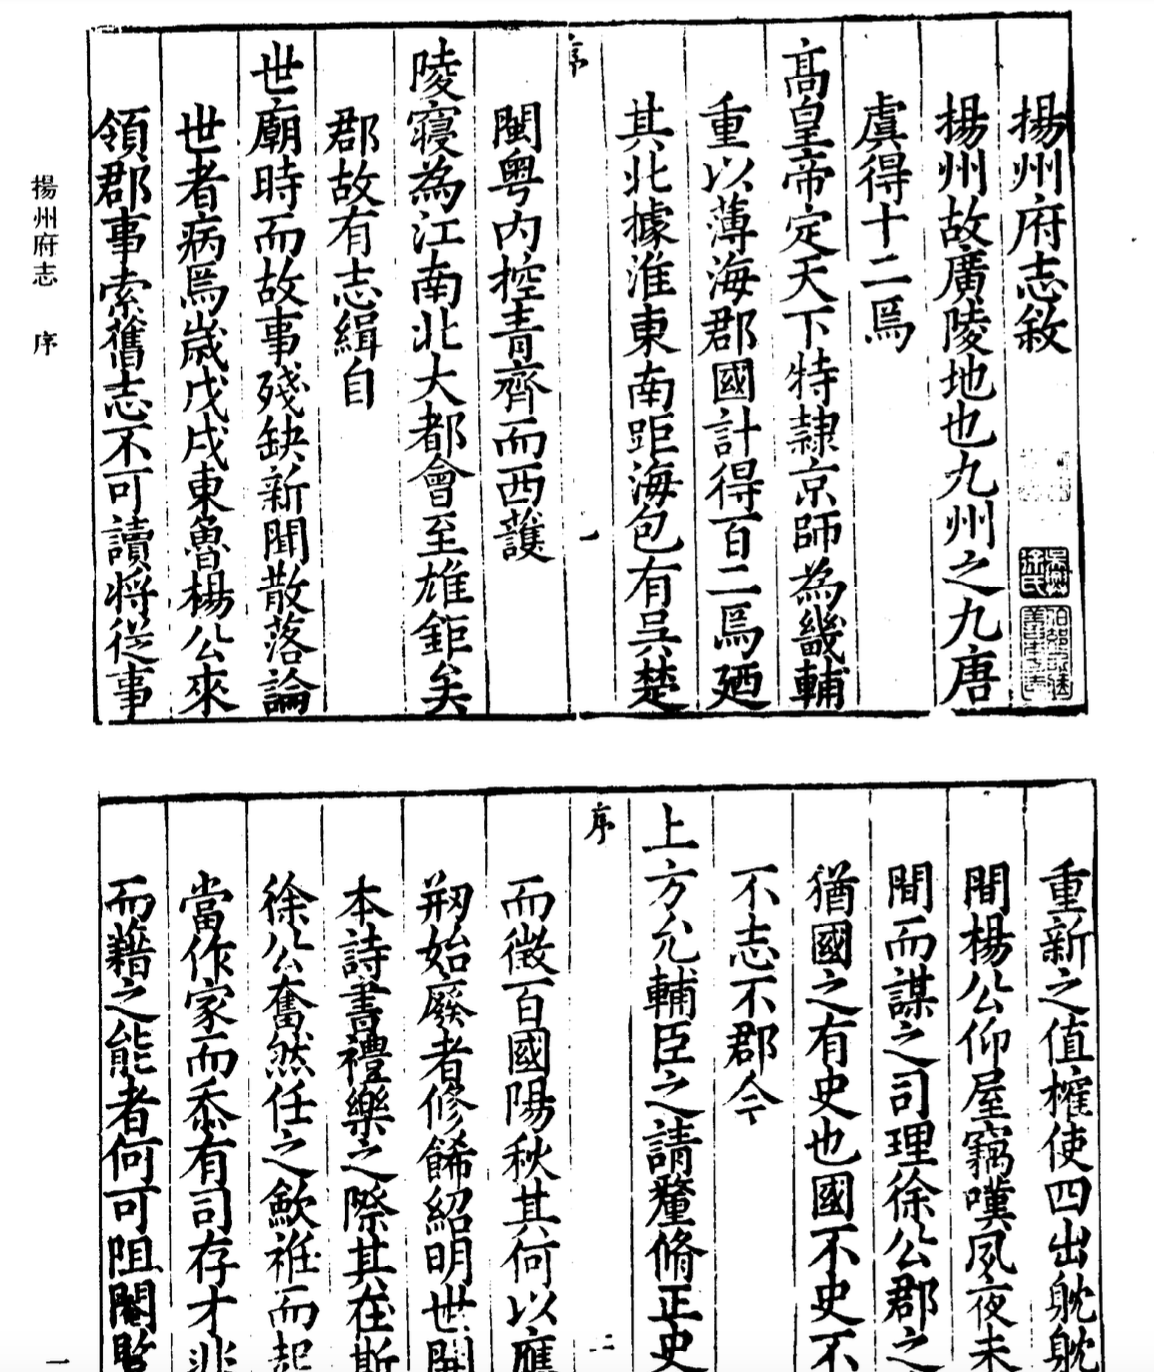 揚州府志敘
揚州故廣陵地也九州之九唐
虞得十二焉
高皇帝定天下特隷京師為畿輔
重以薄海郡國計得百二焉廼
其北據淮東南距海包有吳楚
序
一
閩粤内控青齊而西護
陵寢為江南北大都會至雄鉅矣
郡故有志緝自
世廟時而故事殘缺新聞散落論
世者病焉歲戊戌東魯楊公來
領郡事索舊志不可讀將從事
揚州府志 序
重新之值榷使四出躭躭
間楊公仰屋竊嘆夙夜未
間而謀之司理徐公郡之
猶國之有史也國不史不
不志不郡今
上方允輔臣之請釐脩正史
序
二
而徵百國陽秋其何以應
剏始廢者修餙紹明世開
本詩書禮樂之際其在斯
徐公奮然任之歛袵而起
當作家而忝有司存才非
而藉之能者何可阻閣暨
一